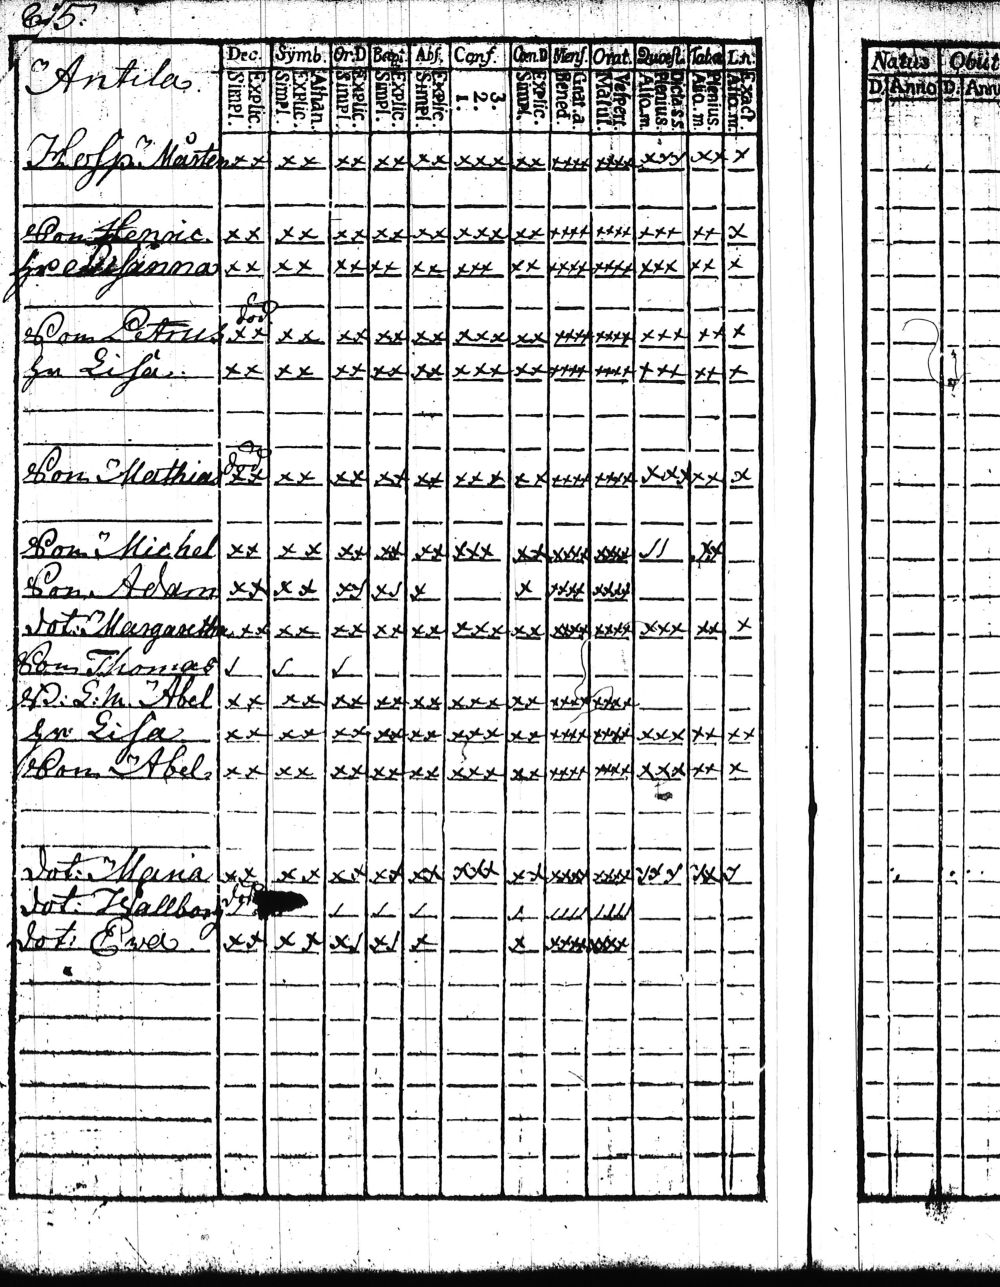 615.
Antila. Dec. Symb. Or.D Bapt. Abs. Conf. Cœn.D Mens. Orat. Quæst. Tabœ Lit: Natus Obiit
Explic. Simpl. Athan. Explic. Simpl. Explic. Simpl. Explic. Simpl. Explic. Simpl. 3. 2. 1. Explic. Simpl. Grat. a Bened. Vesper. Matut. Dict. SS. Plenius. Aliq.m. Plenius. Aliq.m Exact. Aliq.m. D. Anno D. Anno
Hosp. Mårten xx xx xx xx xx xxx xx xxxx xxxx xxx xx x
Son Henric. xx xx xx xx xx xxx xx xxxx xxxx xxx xx x
hr Susanna xx xx xx xx xx xxx xx xxxx xxxx xxx xx x
död
Son Petrus xx xx xx xx xx xxx xx xxxx xxxx xxx xx x
hr Lisa. xx xx xx xx xx xxx xx xxxx xxxx xxx xx x
död
Son Mathias xx xx xx xx xx xxx xx xxxx xxxx xxx xx x
Son Michel xx xx xx xx xx xxx xx xxxx xxxx // xx
Son Adam xx xx x/ x/ x x xxxx xxxx
dot: Margaretha xx xx xx xx xx xxx xx xxxx xxxx xxx xx x
Son Thomas / / /
Abel xx xx xx xx xx xxx xx xxxx xxxx
hr Lisa xx xx xx xx xx xxx xx xxxx xxxx xxx xx xx
Son Abel. xx xx xx xx xx xxx xx xxxx xxxx xxx xx x
dot: Maria xx xx xx xx xx xxx xx xxxx xxxx xxx xx x
död
dot: Wallborg / / / / / //// ////
dot: Eva. xx xx x/ x/ x x xxxx xxxx